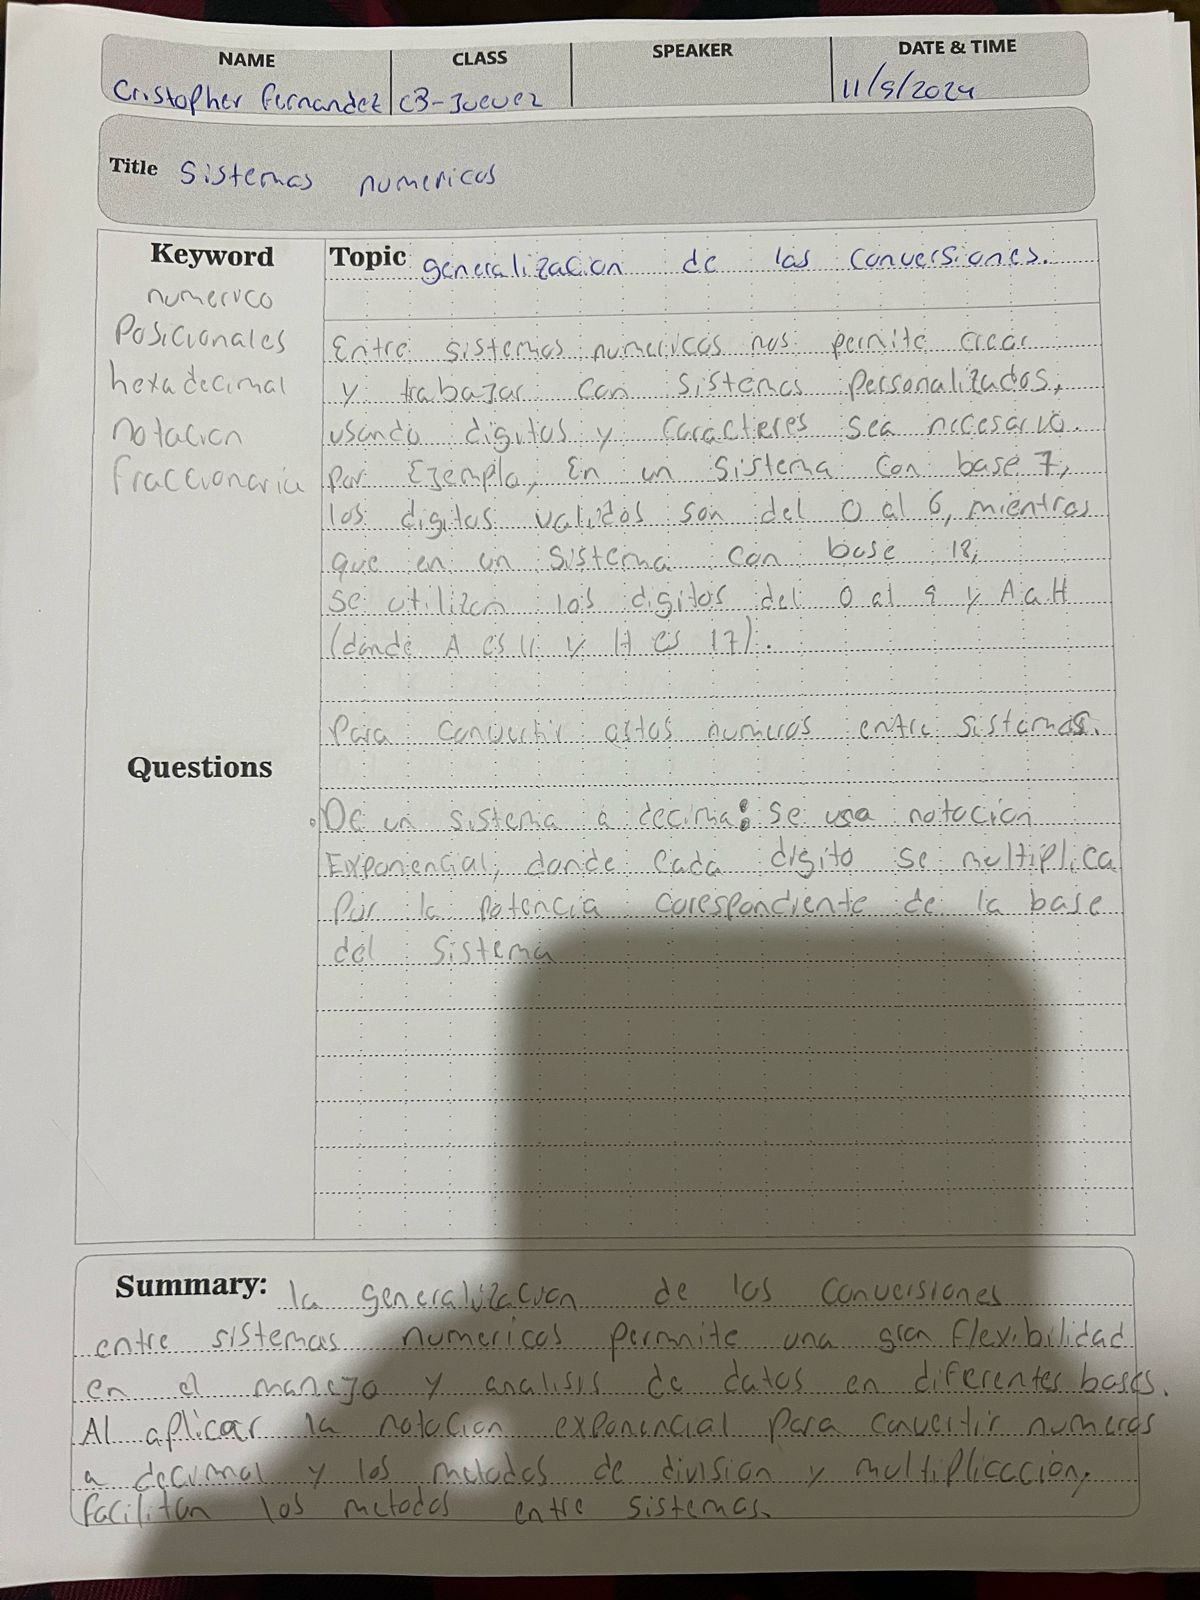 NAME CLASS SPEAKER DATE & TIME
Cristopher Fernandez C3-Juevez 11/9/2024
Title Sistemas numericos
Keyword
numerico
Posicionales
hexadecimal
notacion
fraccionaria
Topic generalizacion de las conversiones.
Entre sistemas numericos nos permite crear
y trabajar con sistemas personalizados,
usando digitos y caracteres sea necesario.
Por Ejemplo, En un sistema con base 7,
los digitos validos son del 0 al 6, mientras
que en un sistema con base 18,
se utilizan los digitos del 0 al 9 y A a H
(donde A es 11 y H es 17).
Para convertir estos numeros entre sistemas.
Questions
De un sistema a decimal: se usa notacion
Exponencial, donde cada digito se multiplica
Por la potencia corespondiente de la base
del sistema
Summary: la generalizacion de las conversiones
entre sistemas numericos permite una gran flexibilidad
en el manejo y analisis de datos en diferentes bases.
Al aplicar la notacion exponencial para convertir numeros
a decimal y los metodos de division y multiplicacion,
facilitan los metodos entre sistemas.